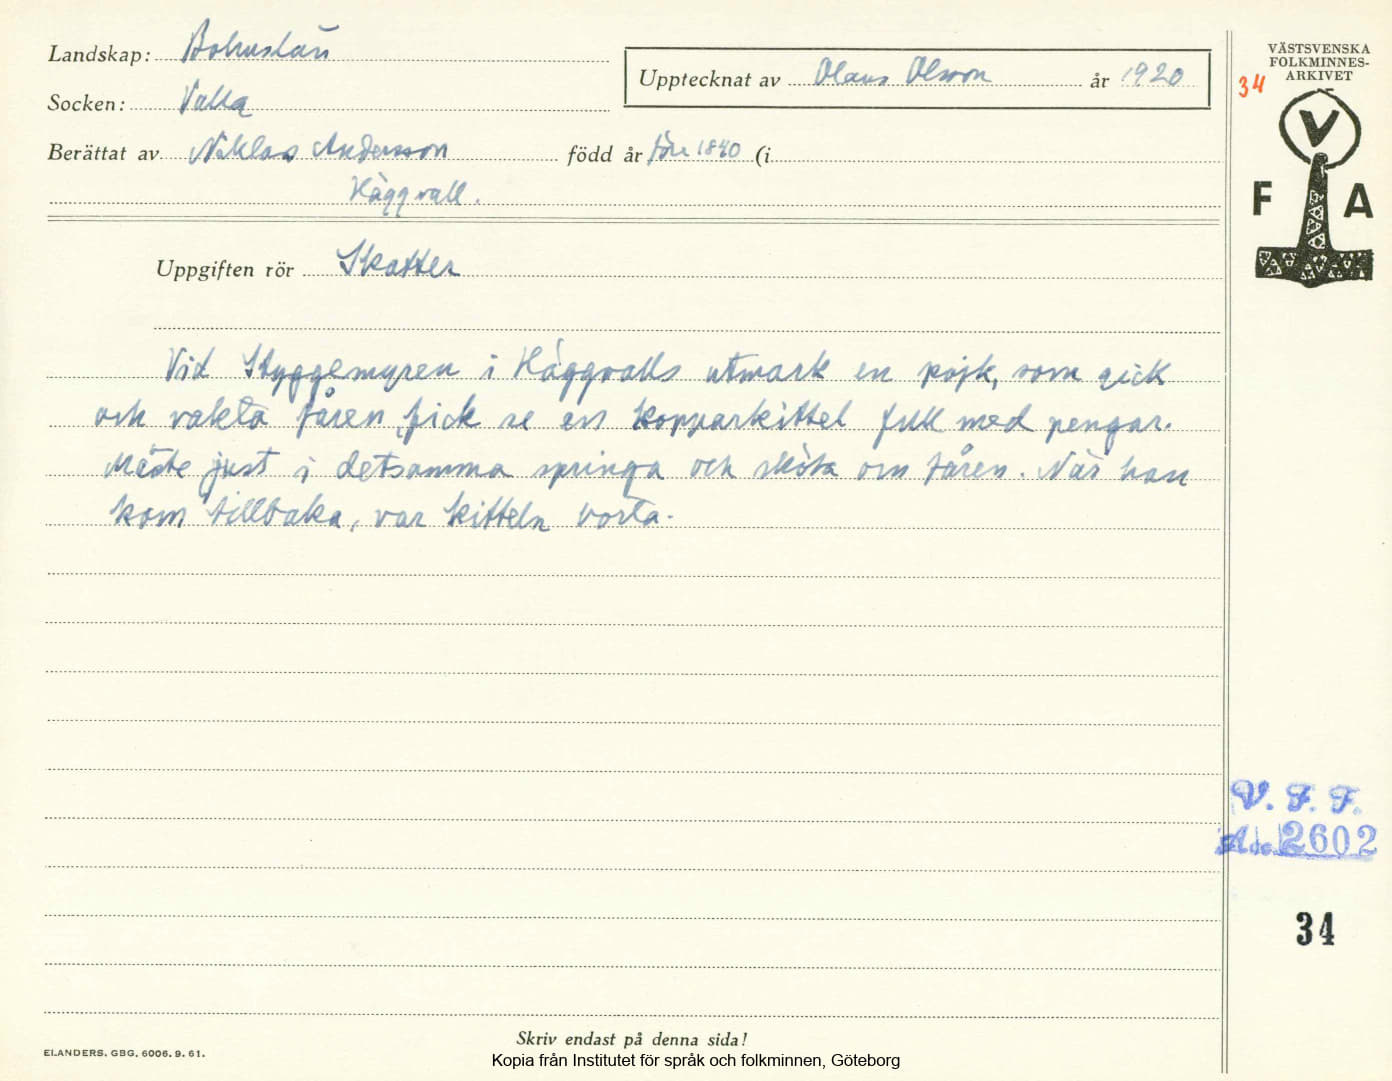 Landskap: Bohuslän
Upptecknat av Olaus Olsson år 1920
Socken: Valla
Berättat av Niklas Andersson född år före 1840 (i
Häggvall.
Uppgiften rör Skatter
Vid Styggemyren i Häggvalls utmark en pojk, som gick
och vakta fåren, fick se en kopparkittel full med pengar.
Måste just i detsamma springa och sköta om fåren. När han
kom tillbaka, var kitteln borta.
Skriv endast på denna sida!
ELANDERS. GBG. 6006. 9. 61.
Kopia från Institutet för språk och folkminnen, Göteborg
VÄSTSVENSKA
FOLKMINNES-
ARKIVET
34
V
F A
V. F. F.
2602
34